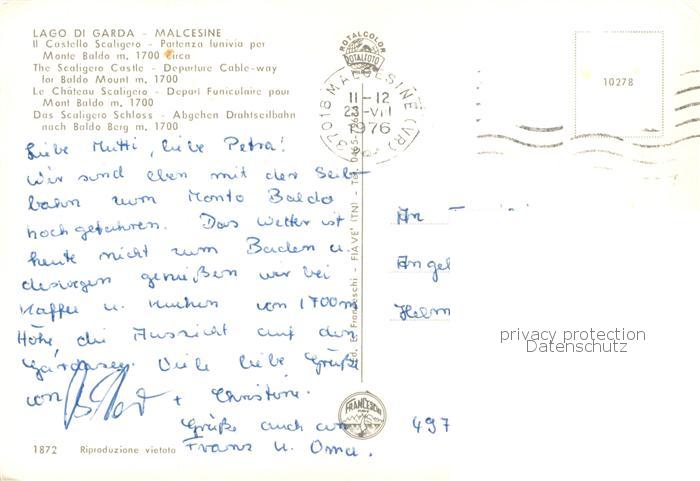 LAGO DI GARDA - MALCESINE
Il Castello Scaligero - Partenza funivia per
Monte Baldo m. 1700 circa
The Scaligero Castle - Departure Cable-way
for Baldo Mount m. 1700
Le Château Scaligero - Depari Funiculaire pour
Mont Baldo m. 1700
Das Scaligero Schloss - Abgehen Drahtseilbahn
nach Baldo Berg m. 1700
ROTALCOLOR
ROTALFOTO
37018 MALCESINE (VR)
11-12
23-VII
1976
10278
Liebe Mutti, liebe Petra!
Wir sind eben mit der Seil-
bahn zum Monto Baldo
hochgefahren. Das Wetter ist
heute nicht zum Baden u.
deswegen genießen wir bei
Kaffee u. Kuchen von 1700m
Höhe die Aussicht auf den
Gardasee. Viele liebe Grüße
von + Christine.
Grüße auch an
Franz u. Oma.
Ed. E. Franceschi - FIAVE' (TN) - Tel. 0465-
An
Angel
Helm
497
privacy protection
Datenschutz
FRANCESCHI
1872 Riproduzione vietata